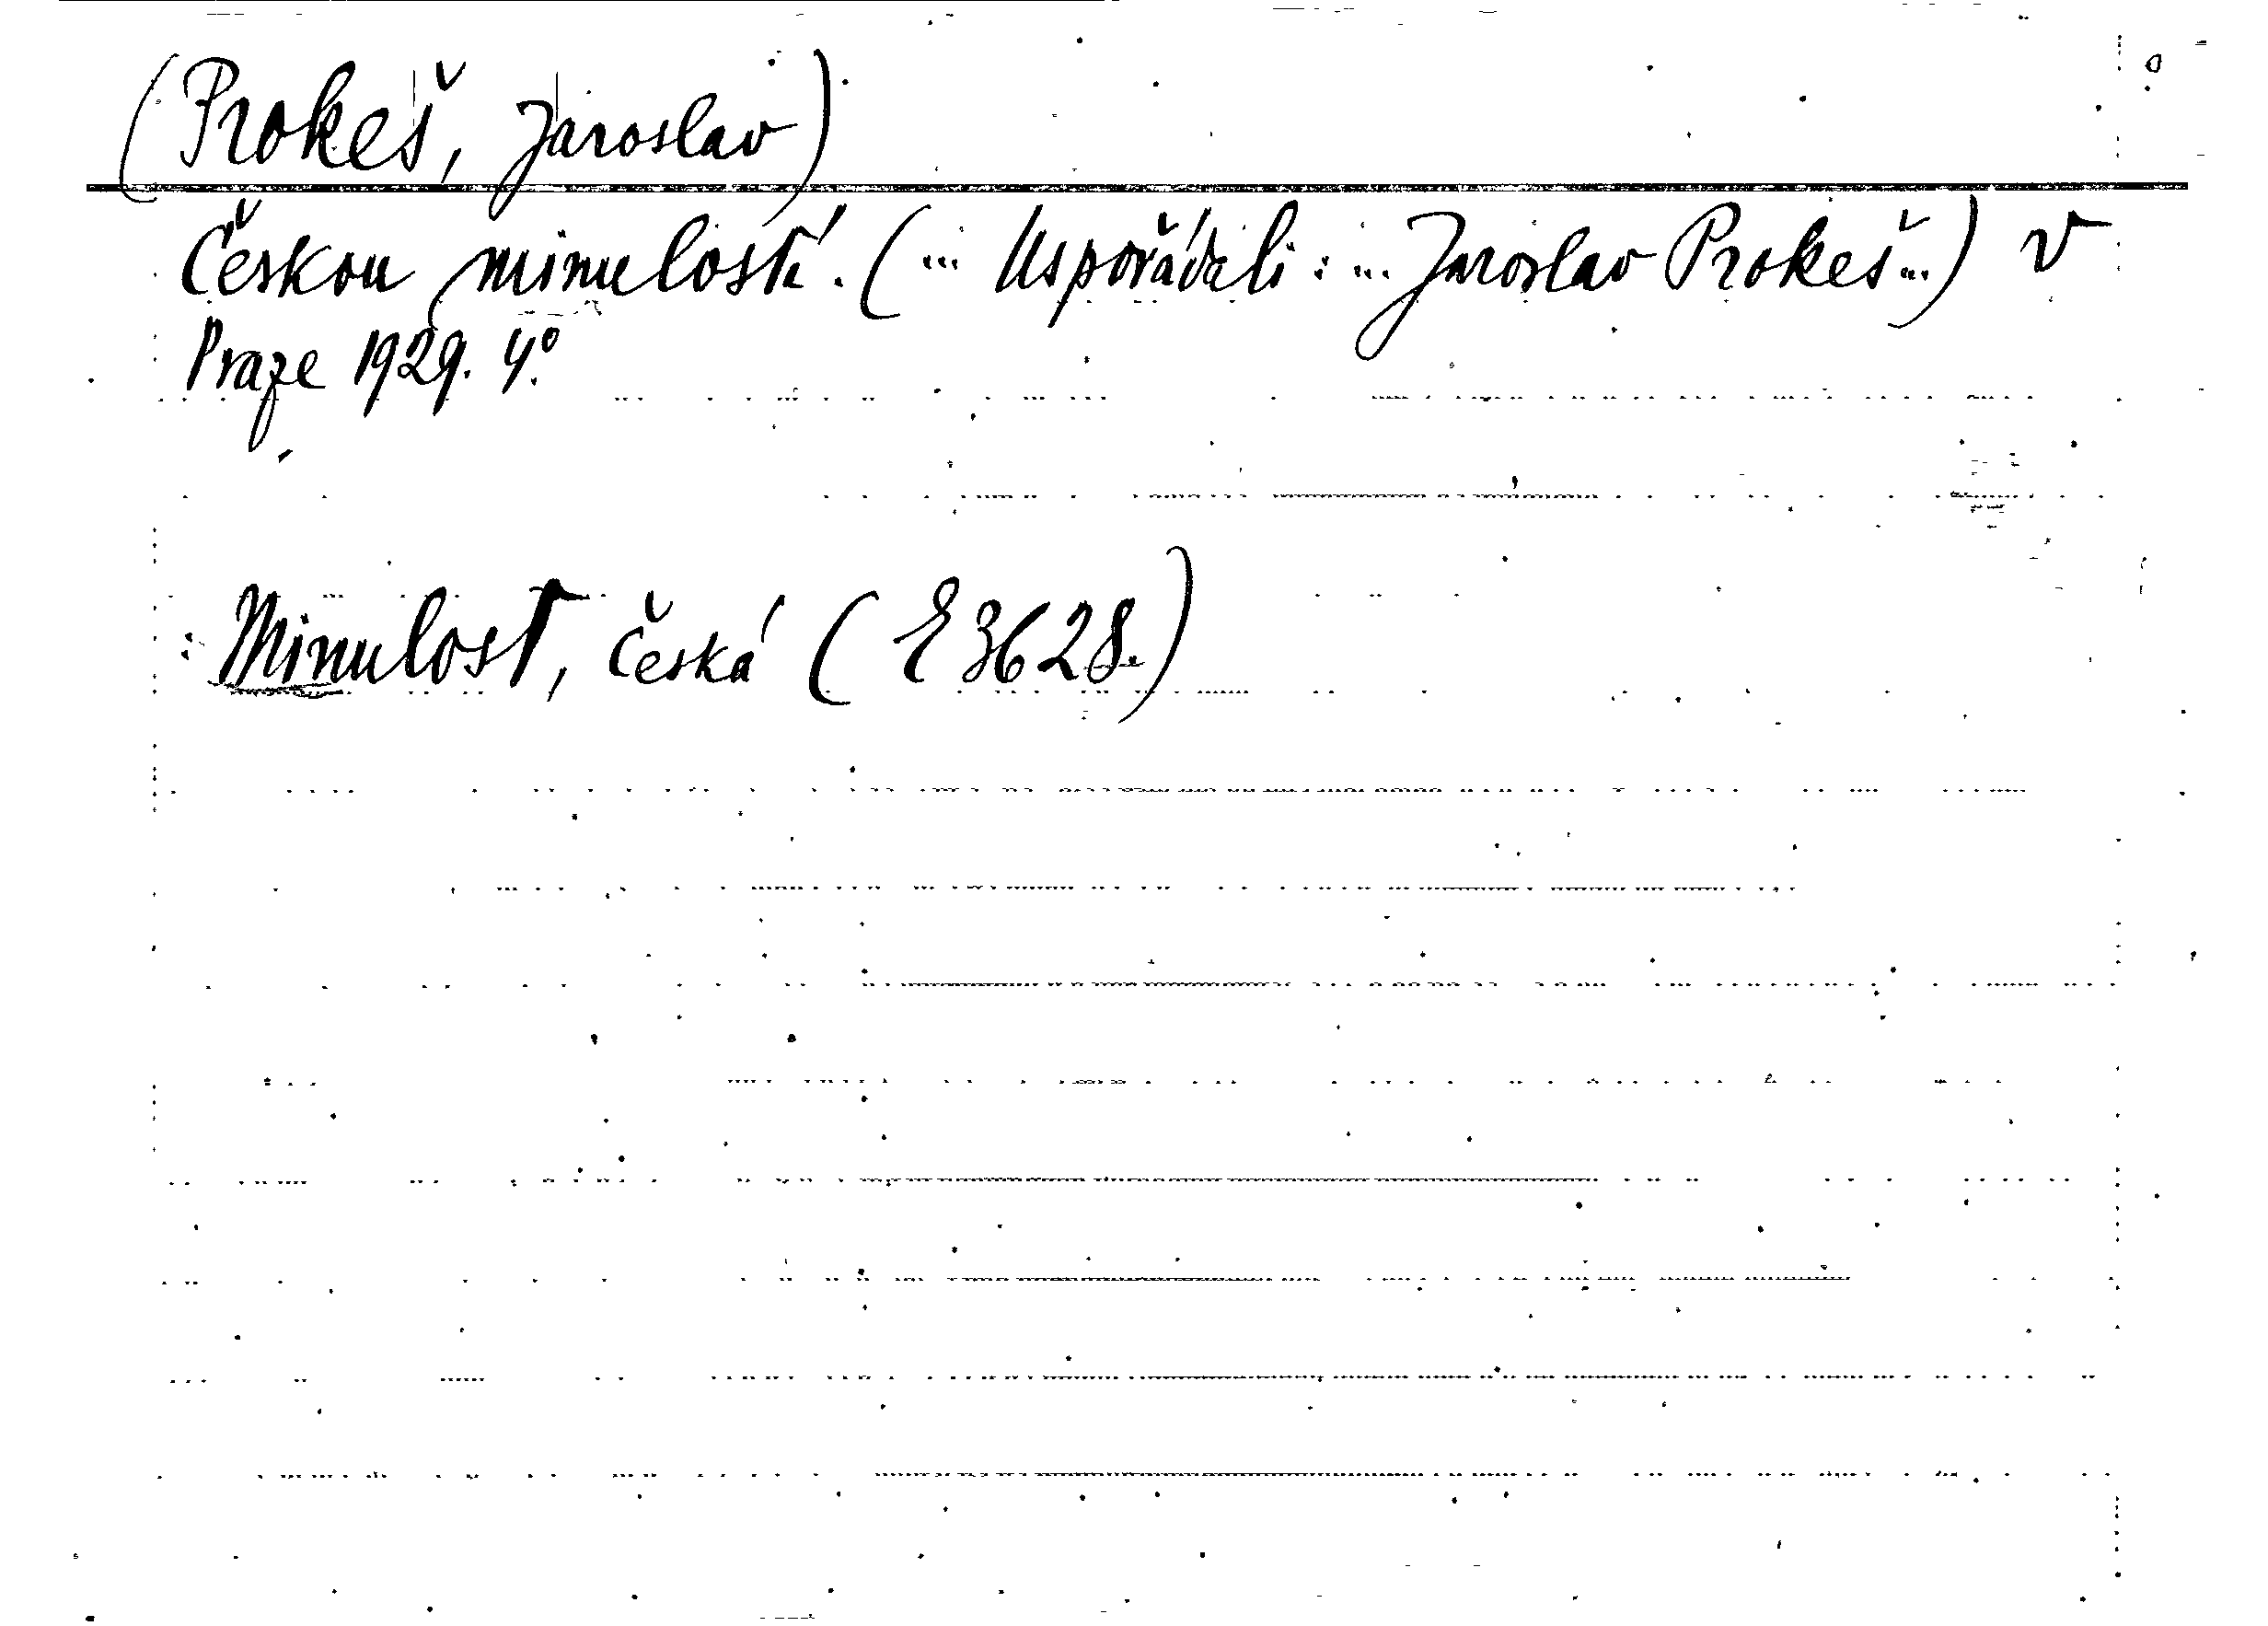 (Prokeš, Jaroslav)
Českou minulostí. (... Uspořádali: ... Jaroslav Prokeš...) V
Praze 1929. 4°.
: Minulost, česká (E 3628.)